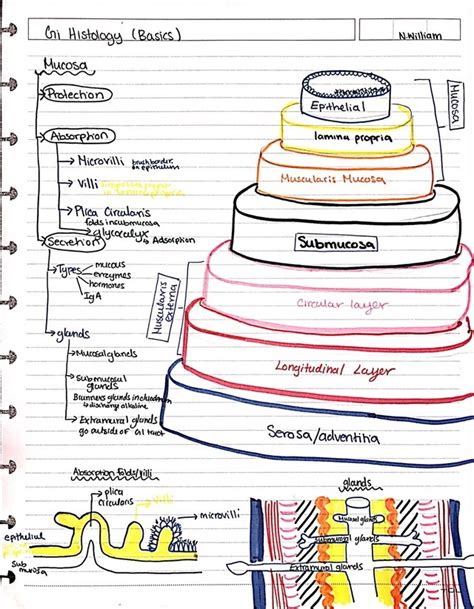 Gi Histology (Basics)
N.William
Mucosa
Protection
Absorption
Microvilli brush border
on epithelium
Villi
Plica Circularis
folds in submucosa
glycocalyx → Adsorption
Secretion
Types
mucous
enzymes
hormones
IgA
glands
Mucosal glands
Submucosal
glands
Brunners glands in duodenum
→ discharge alkaline
Extramural glands
go outside of GI tract
Epithelial
lamina propria
Muscularis Mucosa
Mucosa
Submucosa
Muscularis
externa
Circular layer
Longitudinal Layer
Serosa/adventina
Absorption folds/villi
plica
circularis
microvilli
epithelial
Sub
mucosa
glands
Mucosal glands
Submucosal glands
Extramural glands